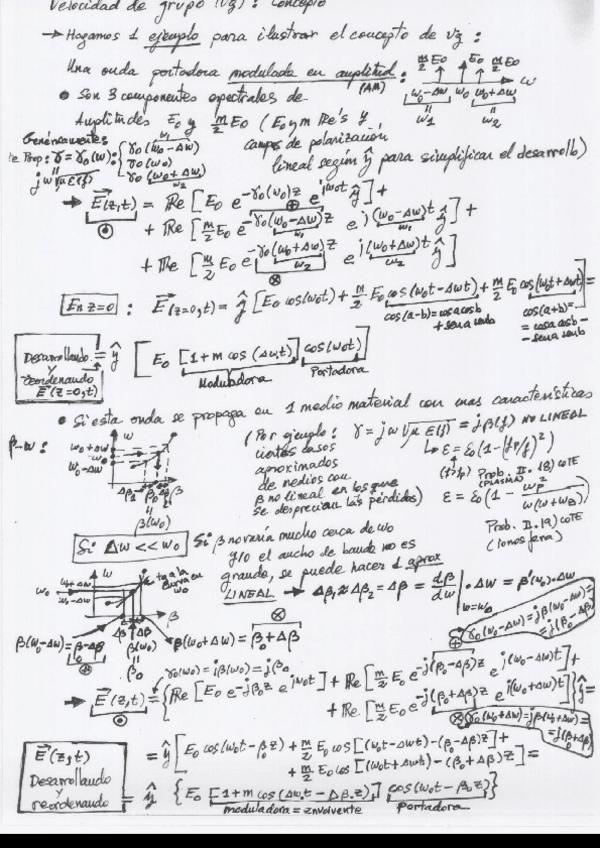 Velocidad de grupo (vg): Concepto
→ Hagamos 1 ejemplo para ilustrar el concepto de vg :
Una onda portadora modulada en amplitud : (AM)
m/2 E0 E0 m/2 E0
ω0-Δω ω0 ω0+Δω ω
ω1 ω2
• Son 3 componentes espectrales de
Amplitudes E0 y m/2 E0 (E0 y m Re's y
campos de polarización
lineal según ŷ para simplificar el desarrollo)
Genéricamente:
γ = γ0(ω): { γ0(ω0-Δω) ω1
γ0(ω0)
γ0(ω0+Δω) ω2
jω√με(f)
→ E(z,t) = Re [E0 e^-γ0(ω0)z e^jω0t ŷ] +
+ Re [m/2 E0 e^-γ0(ω0-Δω)z e^j(ω0-Δω)t ŷ] +
+ Re [m/2 E0 e^-γ0(ω0+Δω)z e^j(ω0+Δω)t ŷ]
En z=0 : E(z=0,t) = ŷ [E0 cos(ω0t) + m/2 E0 cos(ω0t-Δωt) + m/2 E0 cos(ω0t+Δωt)] =
cos(a-b)= cosa cosb + sena senb
cos(a+b)= = cosa cosb - sena senb
Desarrollando y reordenando E(z=0,t)
= ŷ [E0 [1+m cos(Δωt)] cos(ω0t)]
Moduladora Portadora
• Si esta onda se propaga en 1 medio material con unas características
β-ω :
ω0+Δω ω0 ω0-Δω ω
Δβ1 β0 Δβ2 β
β(ω0)
(Por ejemplo:
ciertos casos
aproximados
de medios con
β no lineal en los que
se desprecian las pérdidas)
γ = jω√με(f) = jβ(f) NO LINEAL
ε = ε0(1-(fp/f)²)
Prob. II-18) COTE
(PLASMA)
ε = ε0(1 - ωp²/ω(ω+ωB))
Prob. II.19) COTE
(Ionosfera)
Si Δω << ω0
Si β no varía mucho cerca de ω0
y/o el ancho de banda no es
grande, se puede hacer 1 aprox
LINEAL → Δβ1 ≈ Δβ2 = Δβ = dβ/dω | ω=ω0 · Δω = β'(ω0)·Δω
tg a la curva en ω0
β(ω0-Δω) = β0-Δβ
β(ω0+Δω) = β0+Δβ
β(ω0) β0
γ0(ω0-Δω) = jβ(ω0-Δω) = = j(β0-Δβ)
γ0(ω0) = jβ(ω0) = jβ0
→ E(z,t) = {Re [E0 e^-jβ0z e^jω0t] + Re [m/2 E0 e^-j(β0-Δβ)z e^j(ω0-Δω)t] +
+ Re [m/2 E0 e^-j(β0+Δβ)z e^j(ω0+Δω)t]} ŷ =
γ0(ω0+Δω) = jβ(ω0+Δω) = = j(β0+Δβ)
E(z,t) Desarrollando y reordenando
= ŷ [E0 cos(ω0t-β0z) + m/2 E0 cos[(ω0t-Δωt)-(β0-Δβ)z] +
+ m/2 E0 cos[(ω0t+Δωt)-(β0+Δβ)z]] =
= ŷ {E0 [1+m cos(Δω.t - Δβ.z)] cos(ω0t-β0z)}
moduladora = envolvente portadora